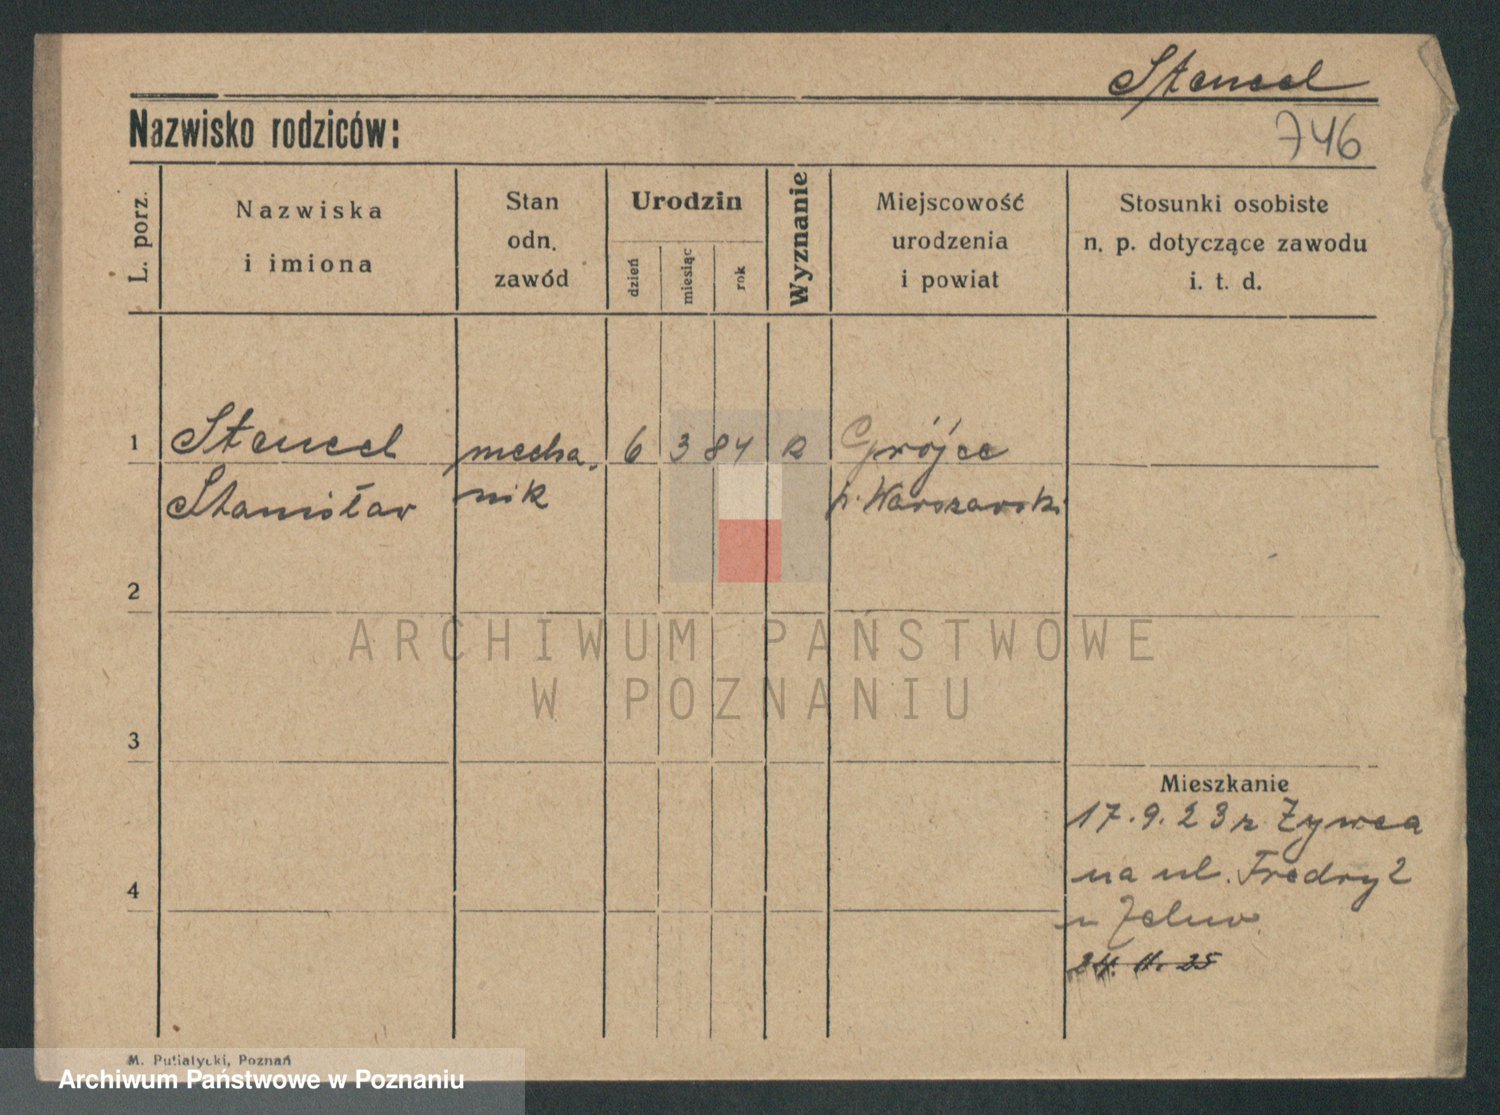 Stencel
Nazwisko rodziców:
746
L. porz.
Nazwiska
i imiona
Stan
odn.
zawód
Urodzin
dzień
miesiąc
rok
Wyznanie
Miejscowość
urodzenia
i powiat
Stosunki osobiste
n. p. dotyczące zawodu
i. t. d.
1 Stencel mecha. 6 3 84 R Grójec
Stanisław nik p. Warszawski
2
3
4
Mieszkanie
17.9.23 z Żywca
na ul. Fredry 2
24. 11. 25
M. Putiatycki, Poznań
ARCHIWUM PAŃSTWOWE
W POZNANIU
Archiwum Państwowe w Poznaniu